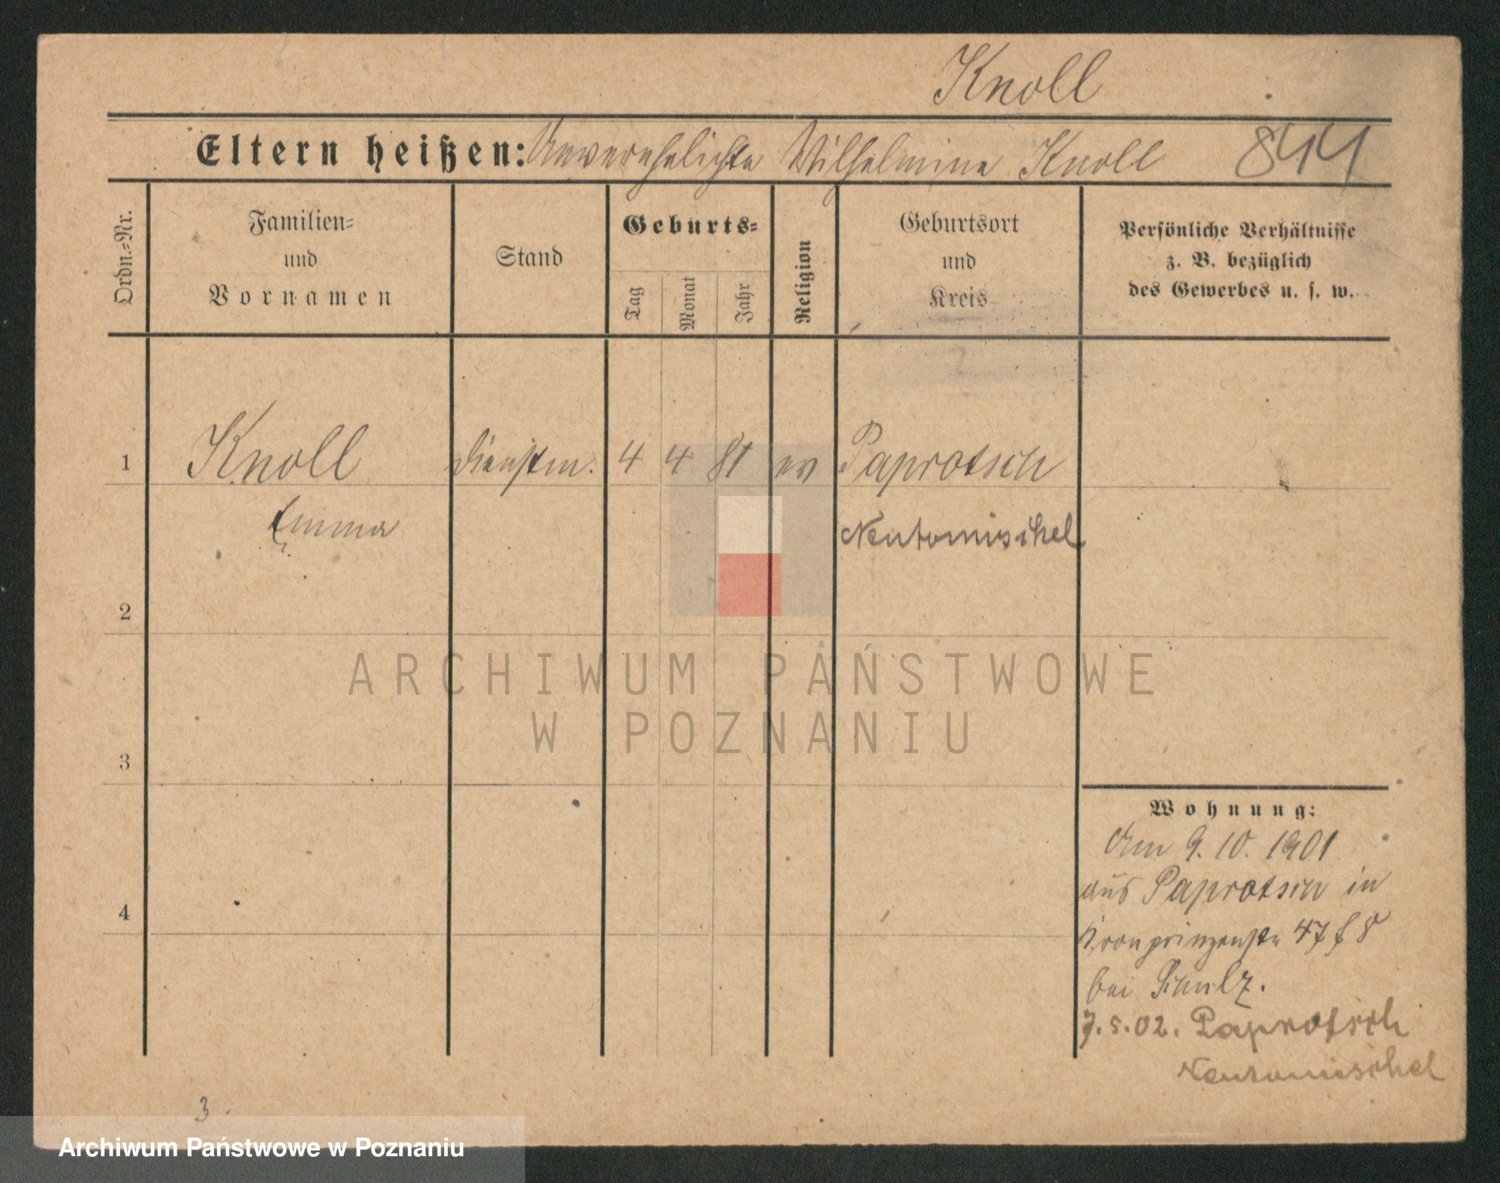 Knoll
Eltern heißen: Unverehelichte Wilhelmine Knoll 844
Ordn.=Nr.
Familien=
und
Vornamen
Stand
Geburts=
Tag
Monat
Jahr
Religion
Geburtsort
und
Kreis
Persönliche Verhältnisse
z. B. bezüglich
des Gewerbes u. s. w.
1 Knoll Dienstm. 4 4 81 ev Paprotsch
Emma Neutomischel
2
ARCHIWUM PAŃSTWOWE
W POZNANIU
3
Wohnung:
Am 9. 10. 1901
aus Paprotsch in
4
Kronprinzenstr 47
bei Schulz.
7.5.02. Paprotsch
Neutomischel
3
Archiwum Państwowe w Poznaniu